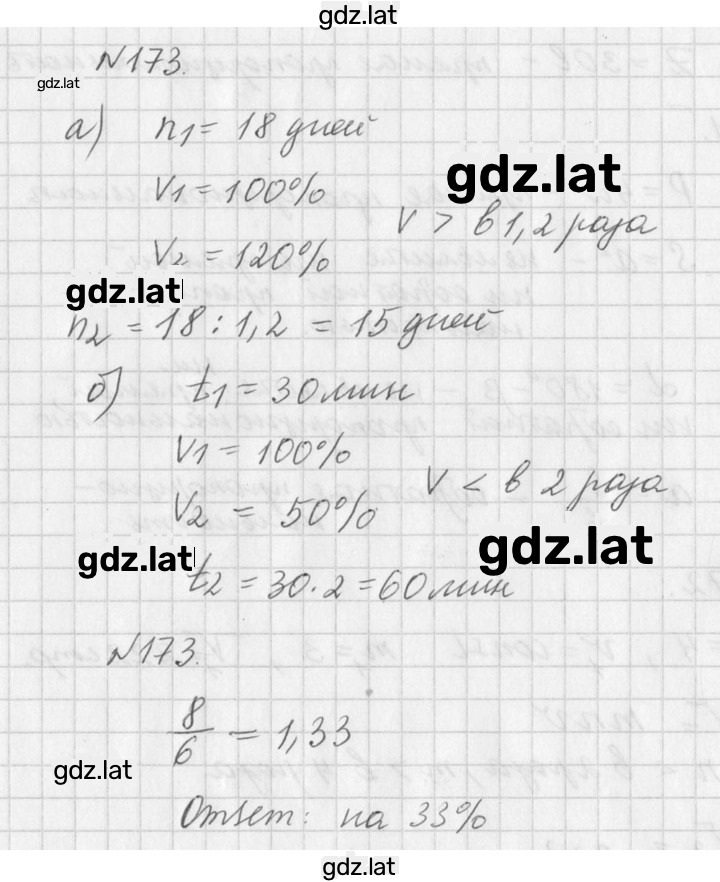 gdz.lat
№173.
gdz.lat
а) n1 = 18 дней
V1 = 100%
gdz.lat
V > в 1,2 раза
V2 = 120%
gdz.lat
n2 = 18 : 1,2 = 15 дней
б) t1 = 30 мин
V1 = 100%
V < в 2 раза
V2 = 50%
gdz.lat
gdz.lat
t2 = 30 · 2 = 60 мин
№173.
8/6 = 1,33
gdz.lat
Ответ: на 33%
gdz.lat